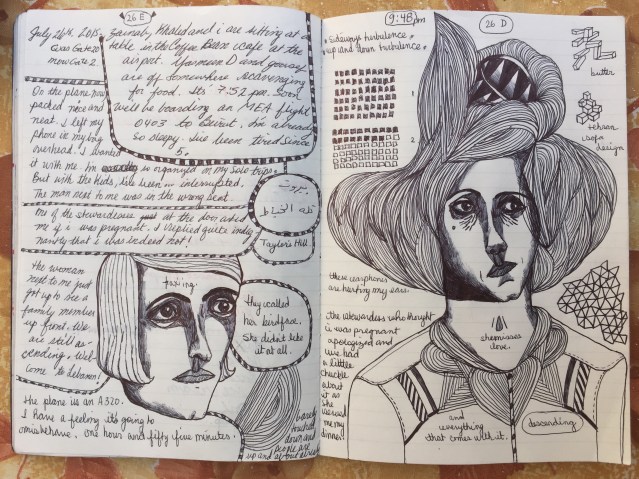 26 E
July 26th. 2015.
was Gate 20
now Gate 2
Zainab, Khaled and i are sitting at a
table in the Coffee Bean cafe at the
airport. Yasmeen D and
are off somewhere scavenging
for food. Its' 7:52 pm. Soon
we'll be boarding an MEA flight
0403 to Beirut. I'm already
so sleepy. I've been tired since
5.
On the plane now
packed nice and
neat. I left my
phone in my bag
overhead. I wanted
it with me. Im so organized on my solo trips.
But with the kids, Ive been... interrupted.
The man next to me was in the wrong seat.
One of the stewardesses at the door asked
me if i was pregnant. I replied quite indig
nantly that i was indeed not!
بيروت
تلة الخياط
Taylor's Hill.
The woman
next to me just
got up to see a
family member
up front. We
are still as-
cending. Wel-
come to Lebanon!
taxiing.
they called
her birdface.
She didn't like
it at all.
The plane is an A320.
I have a feeling it's going to
misbehave. One hour and fifty five minutes.
barely
touched
down and
people are
up and about already
9:48pm
26 D
Sideways turbulence.
up and down turbulence.
butter
1
2
tehran
design
these earphones
are hurting my ears.
the stewardess who thought
i was pregnant
apologized and
we had
a little
chuckle
about
it as
she
served
me my
dinner.
chemisses
love.
and
everything
that comes with it.
descending